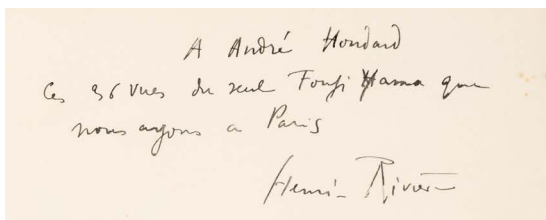 A André Houdard
Ces 36 vues du seul Fousi Yama que
nous ayons a Paris
Henri Rivière